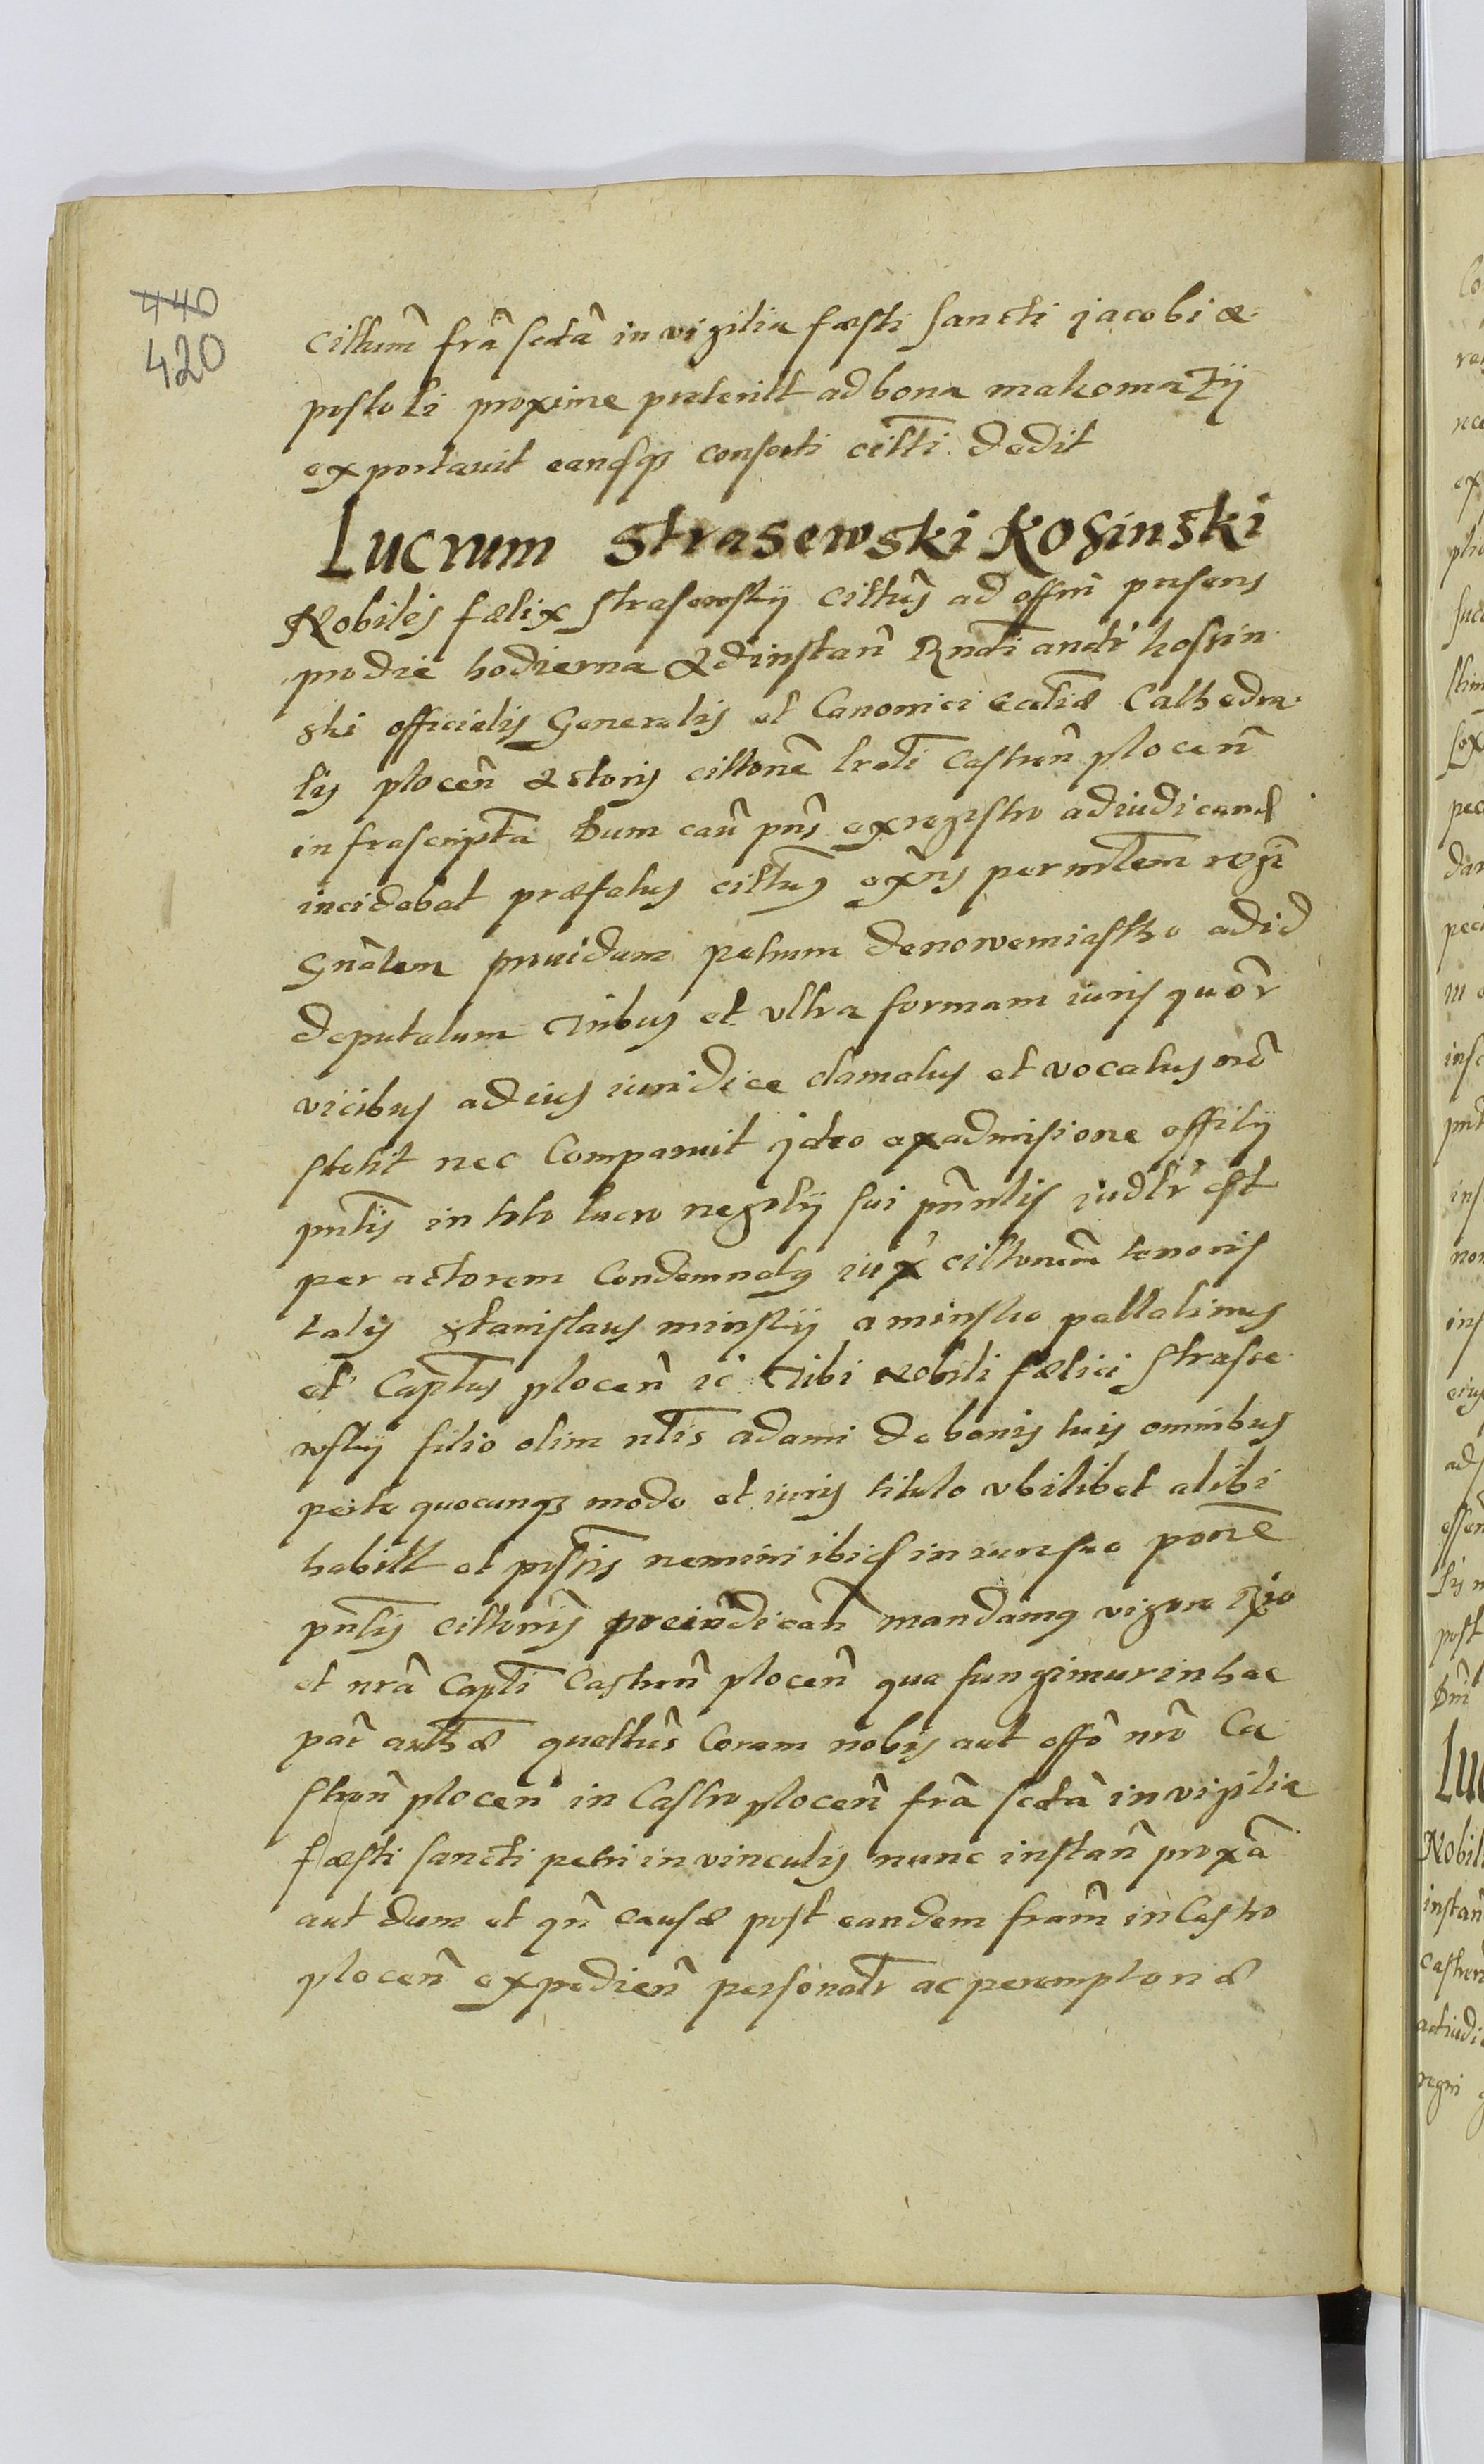 440
420
cittum̃ frã sctã in vigilia fæsti sancti jacobi a-
postoli proxime preteritt ad bona makomazÿ
exportauit eandsqz consorti citti dedit
Lucrum Strasewski Kosinski
Nobilis fælix strasewskÿ cittus ad offm̃ pnsens
pro die hodierna Ad instan̄ Rndi andr kossin-
ski officialis Generalis et Canonici ecctiæ Cathedra-
lis plocen̄ Actoris cittonẽ lrati Castren̄ plocen̄
infrascripta Dum caũ pn̄s ex registro adiudicand
incidebat præfatus cittus exñs per mtem̄ regñ
Gñalem prouidum petrum de nowemiastko ad id
deputatum Tribus et vltra formam iuris quõr
vicibus ad ius iuridice clamatus et vocatus nõ
stetit nec Comparuit ideo ex admisione offity
pn̄tis in toto lucro negoty sui pñntis iudtr est
per actorem Condemnatq iux cittonem̄ tenoris
talis Stanislaus minskÿ a minsko pallatinus
et Captus plocen̄ ic Tibi Nobili fælici Strase-
wskÿ filio olim ntis adami de bonis tuis omnibus
peite quocunqz modo et iuris titulo vbilibet alibi
habitt et possis nemini ibid in iure suo ponẽ
pn̄tis cittonis preiudican̄ mandamq vigore Rio
et nrã Capti Castren̄ plocen̄ qua fungimur in hac
par̄ authæ quattus Coram nobis aut offõ nrõ Ca-
stren̄ plocen̄ in Castro plocen̄ frã sctã in vigilia
fæsti sancti petri in vinculis nunc instan̄ proxã
aut dum et qñ causæ post eandem fram̄ in Castro
plocen̄ expedien̄ personatr ac peremptoriæ